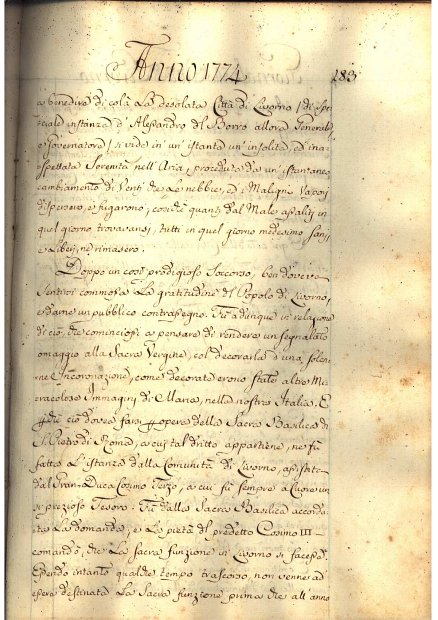 Anno 1774
283
a benedire di colà La desolata Città di Livorno / di spe-
ciale instanza d' Alessandro del Borro allora General
e Governatore / si vide in un' istante un' insolita, ed ina-
spettata Serenità nell' Aria, proceduta da un' istantaneo
cambiamento di Venti che Le nebbie, ed i Maligni Vapori
dispersero, e fugarono; cosiche quanti dal Male assaliti in
quel giorno trovavansi, tutti in quel giorno medesimo sani
e Liberi ne rimasero.
Doppo un così prodigioso Soccorso, ben doveva
sentirsi commossa La gratitudine del Popolo di Livorno,
e darne un pubblico contrasegno. Fu adunque in relazione
di ciò, che cominciossi a pensare di rendere un segnalato
omaggio alla Sacra Vergine, col decorarla d' una solen-
ne Incoronazione, come decorate erono state altre Mi-
racolose Immagini di Maria, nella nostra Italia. E
ciò dovea farsi opera della Sacra Basilica di
S. Pietro di Roma, a cui tal dritto appartiene, ne fu
fatta L' istanza dalla Comunità di Livorno, assistita
dal Gran-Duca Cosimo Terzo, a cui fù sempre a Cuore un
sì prezioso Tesoro. Fù dalla Sacra Basilica accorda-
ta La domanda, e La pietà del predetto Cosimo III
comandò, che La sacra funzione in Livorno si facesse.
Essendo intanto qualche tempo trascorso, non venne ad
essere destinata La Sacra funzione prima che all' anno